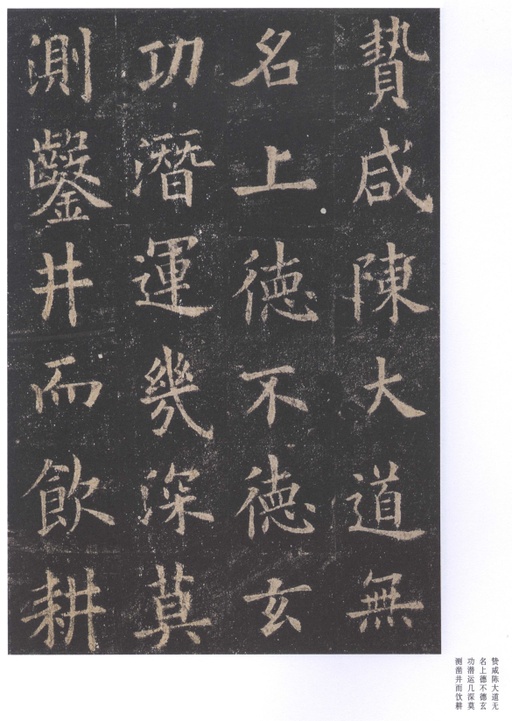 贄咸陳大道無
名上徳不徳玄
功潛運幾深莫
測鑿井而飲耕
贽咸陈大道无
名上德不德玄
功潜运几深莫
测凿井而饮耕